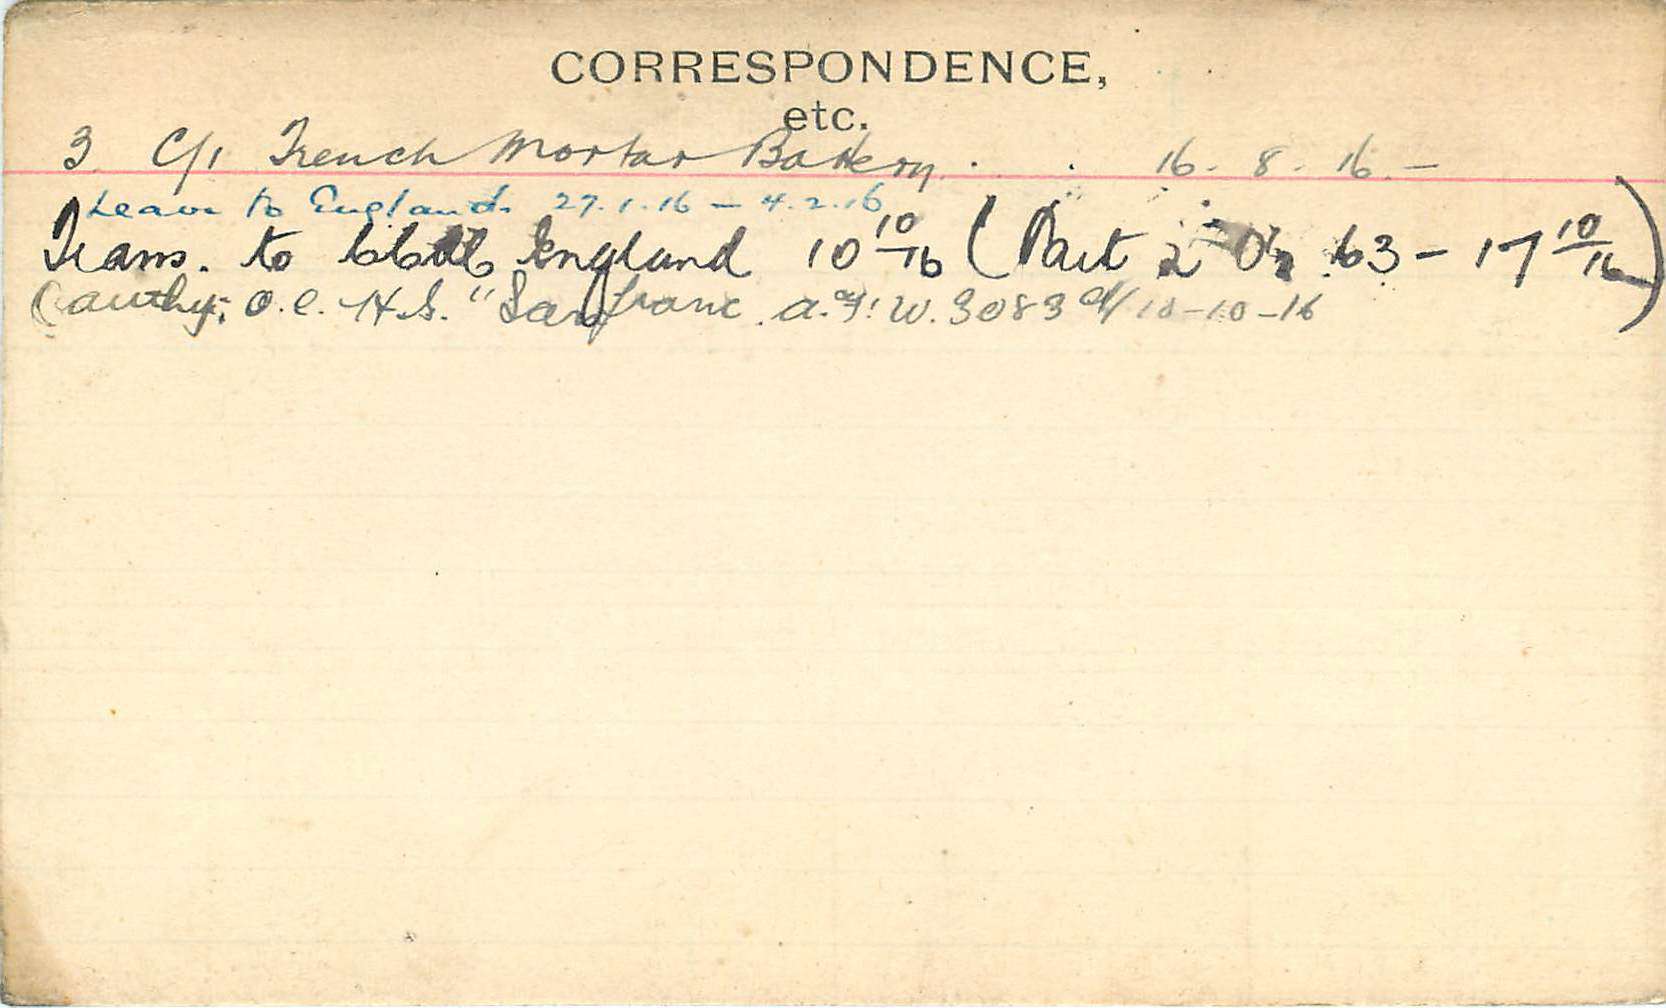 CORRESPONDENCE,
etc.
3 C/1 Trench Mortar Battery . . 16 - 8 - 16 -
Leave to England. 27.1.16 - 4.2.16
Trans. to England 10 10/16 (Part 2 63 - 17 10/16)
(authy: O.C. H.S. "San A.F. W. 3083 d/ 10-10-16